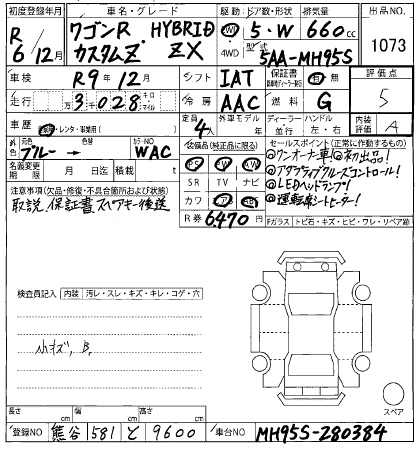 初度登録年月 車名・グレード 駆動 ドア数・形状 排気量 出品NO.
R6/12月 ワゴンR HYBRID カスタムZ ZX 2WD 4WD 5・W 660cc 1073
型式 5AA-MH95S
車検 R9年12月 シフト IAT 保証書 有・無 評価点 5
走行 3万3028 キロ マイル 冷房 AAC 燃料 G
車歴 自家・レンタ・事業用( ) 定員 4人 外車モデル 年 ディーラー・並行 ハンドル 左・右 内装評価 A
外色 元色 ブルー → 色替 カラーNO WAC
名義変更期限 月 日迄 積載 t
装備品(純正品に限る)
PS PW AW
SR TV ナビ
カワ
R券 6,470円
セールスポイント(正常に作動するもの)
◎ワンオーナー車!◎初出品!
◎アダプティブクルーズコントロール!
◎LEDヘッドランプ!
◎運転席シートヒーター!
注意事項(欠品・修復・不具合箇所および状態)
取説、保証書、スペアキー後送
Fガラス トビ石・キズ・ヒビ・ワレ・リペア跡
検査員記入 内装 汚レ・スレ・キズ・キレ・コゲ・穴
小キズ、B,
スペア
長さ cm 幅 cm 高さ cm
登録NO 熊谷 581 と 9600 車台NO MH95S-280384